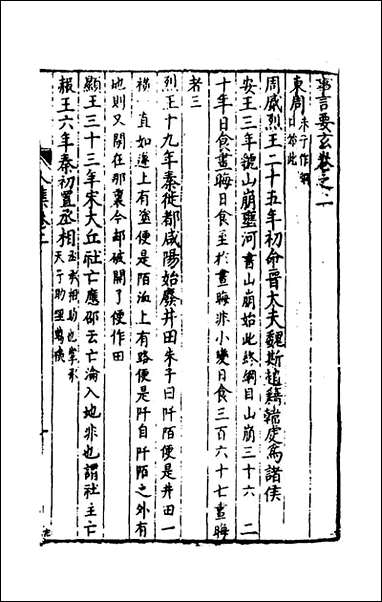 事言要玄卷之二
東周朱子作綱目始此
周威烈王二十五年初命晉大夫魏斯趙籍韓虔為諸侯
安王三年虢山崩壅河書山崩始此終綱目山崩三十六 二
十年日食晝晦日食至於晝晦非小變日食三百六十七晝晦
者三
烈王十九年秦徙都咸陽始廢井田朱子曰阡陌便是井田一
橫一直如遂上有塗便是陌洫上有路便是阡自阡陌之外有
地則又閑在那裏今却破開了便作田
顯王三十三年宋大丘社亡應邵云亡淪入地非也謂社主亡
赧王六年秦初置丞相丞承相助也掌承天子助理萬機
人集卷二